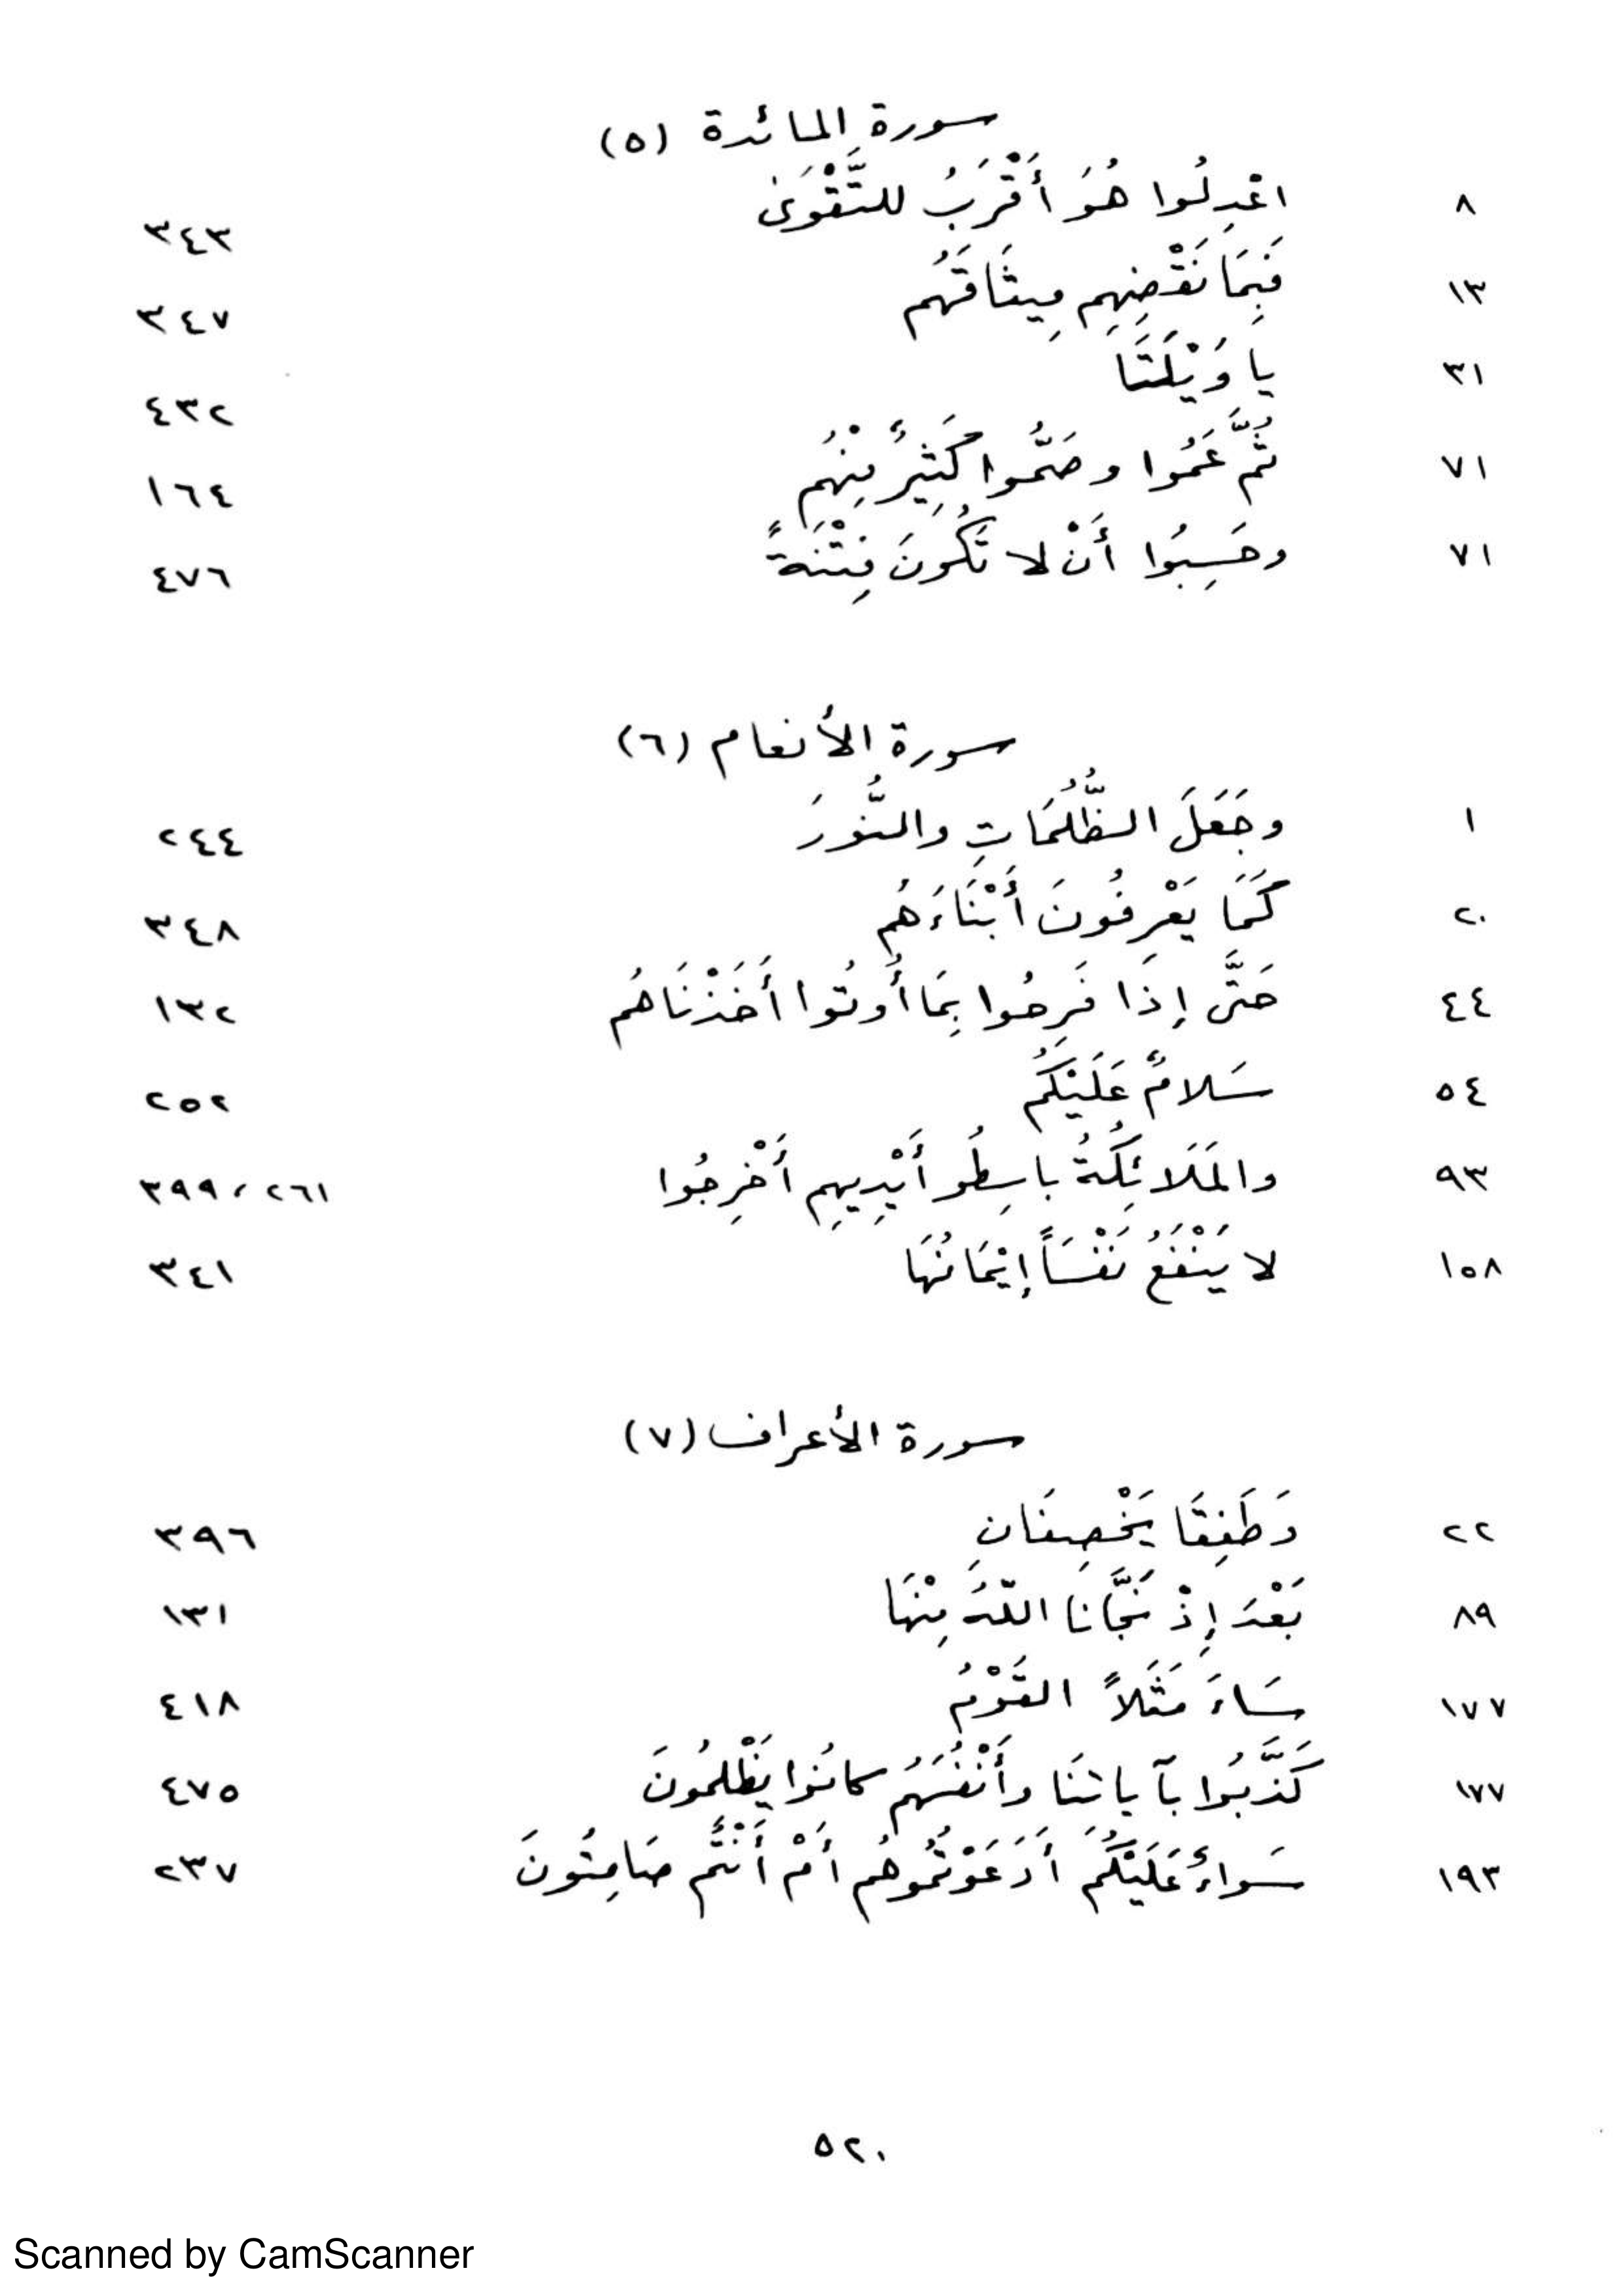 سورة المائدة (٥)
٨ اعْدِلُوا هُوَ أَقْرَبُ للتَّقْوَى ٣٤٣
١٣ فَبِمَا نَقْضِهِم مِيثَاقَهُم ٣٤٧
٣١ يا وَيْلَتَا ٤٣٢
٧١ ثُمَّ عَمُوا وصَمُّوا كَثِيرٌ مِنْهُم ١٦٤
٧١ وحَسِبُوا أَنْ لا تَكُونَ فِتْنَةً ٤٧٦
سورة الأنعام (٦)
١ وجَعَلَ الظُّلُمَاتِ والنُّورَ ٢٤٤
٢٠ كَمَا يَعْرِفُونَ أَبْنَاءَهُم ٣٤٨
٤٤ حَتَّى إِذَا فَرِحُوا بِمَا أُوتُوا أَخَذْنَاهُم ١٣٢
٥٤ سَلامٌ عَلَيْكُم ٢٥٢
٩٣ والمَلَائِكَةُ باسِطُو أَيْدِيهِم أَخْرِجُوا ٢٦١، ٣٩٩
١٥٨ لا يَنْفَعُ نَفْسَاً إيْمَانُهَا ٣٤١
سورة الأعراف (٧)
٢٢ وَطَفِقَا يَخْصِفَانِ ٣٩٦
٨٩ بَعْدَ إِذْ نَجَّانَا اللّهُ مِنْهَا ١٣١
١٧٧ سَاءَ مَثَلاً القَوْمُ ٤١٨
١٧٧ كَذَّبُوا بآياتنَا وأَنْفُسَهُم كانُوا يَظْلمُونَ ٤٧٥
١٩٣ سَواءٌ عَلَيْكُمَ أَدَعَوْتُمُوهُم أَمْ أَنْتُم صَامِتُونَ ٢٣٧
٥٢٠
Scanned by CamScanner